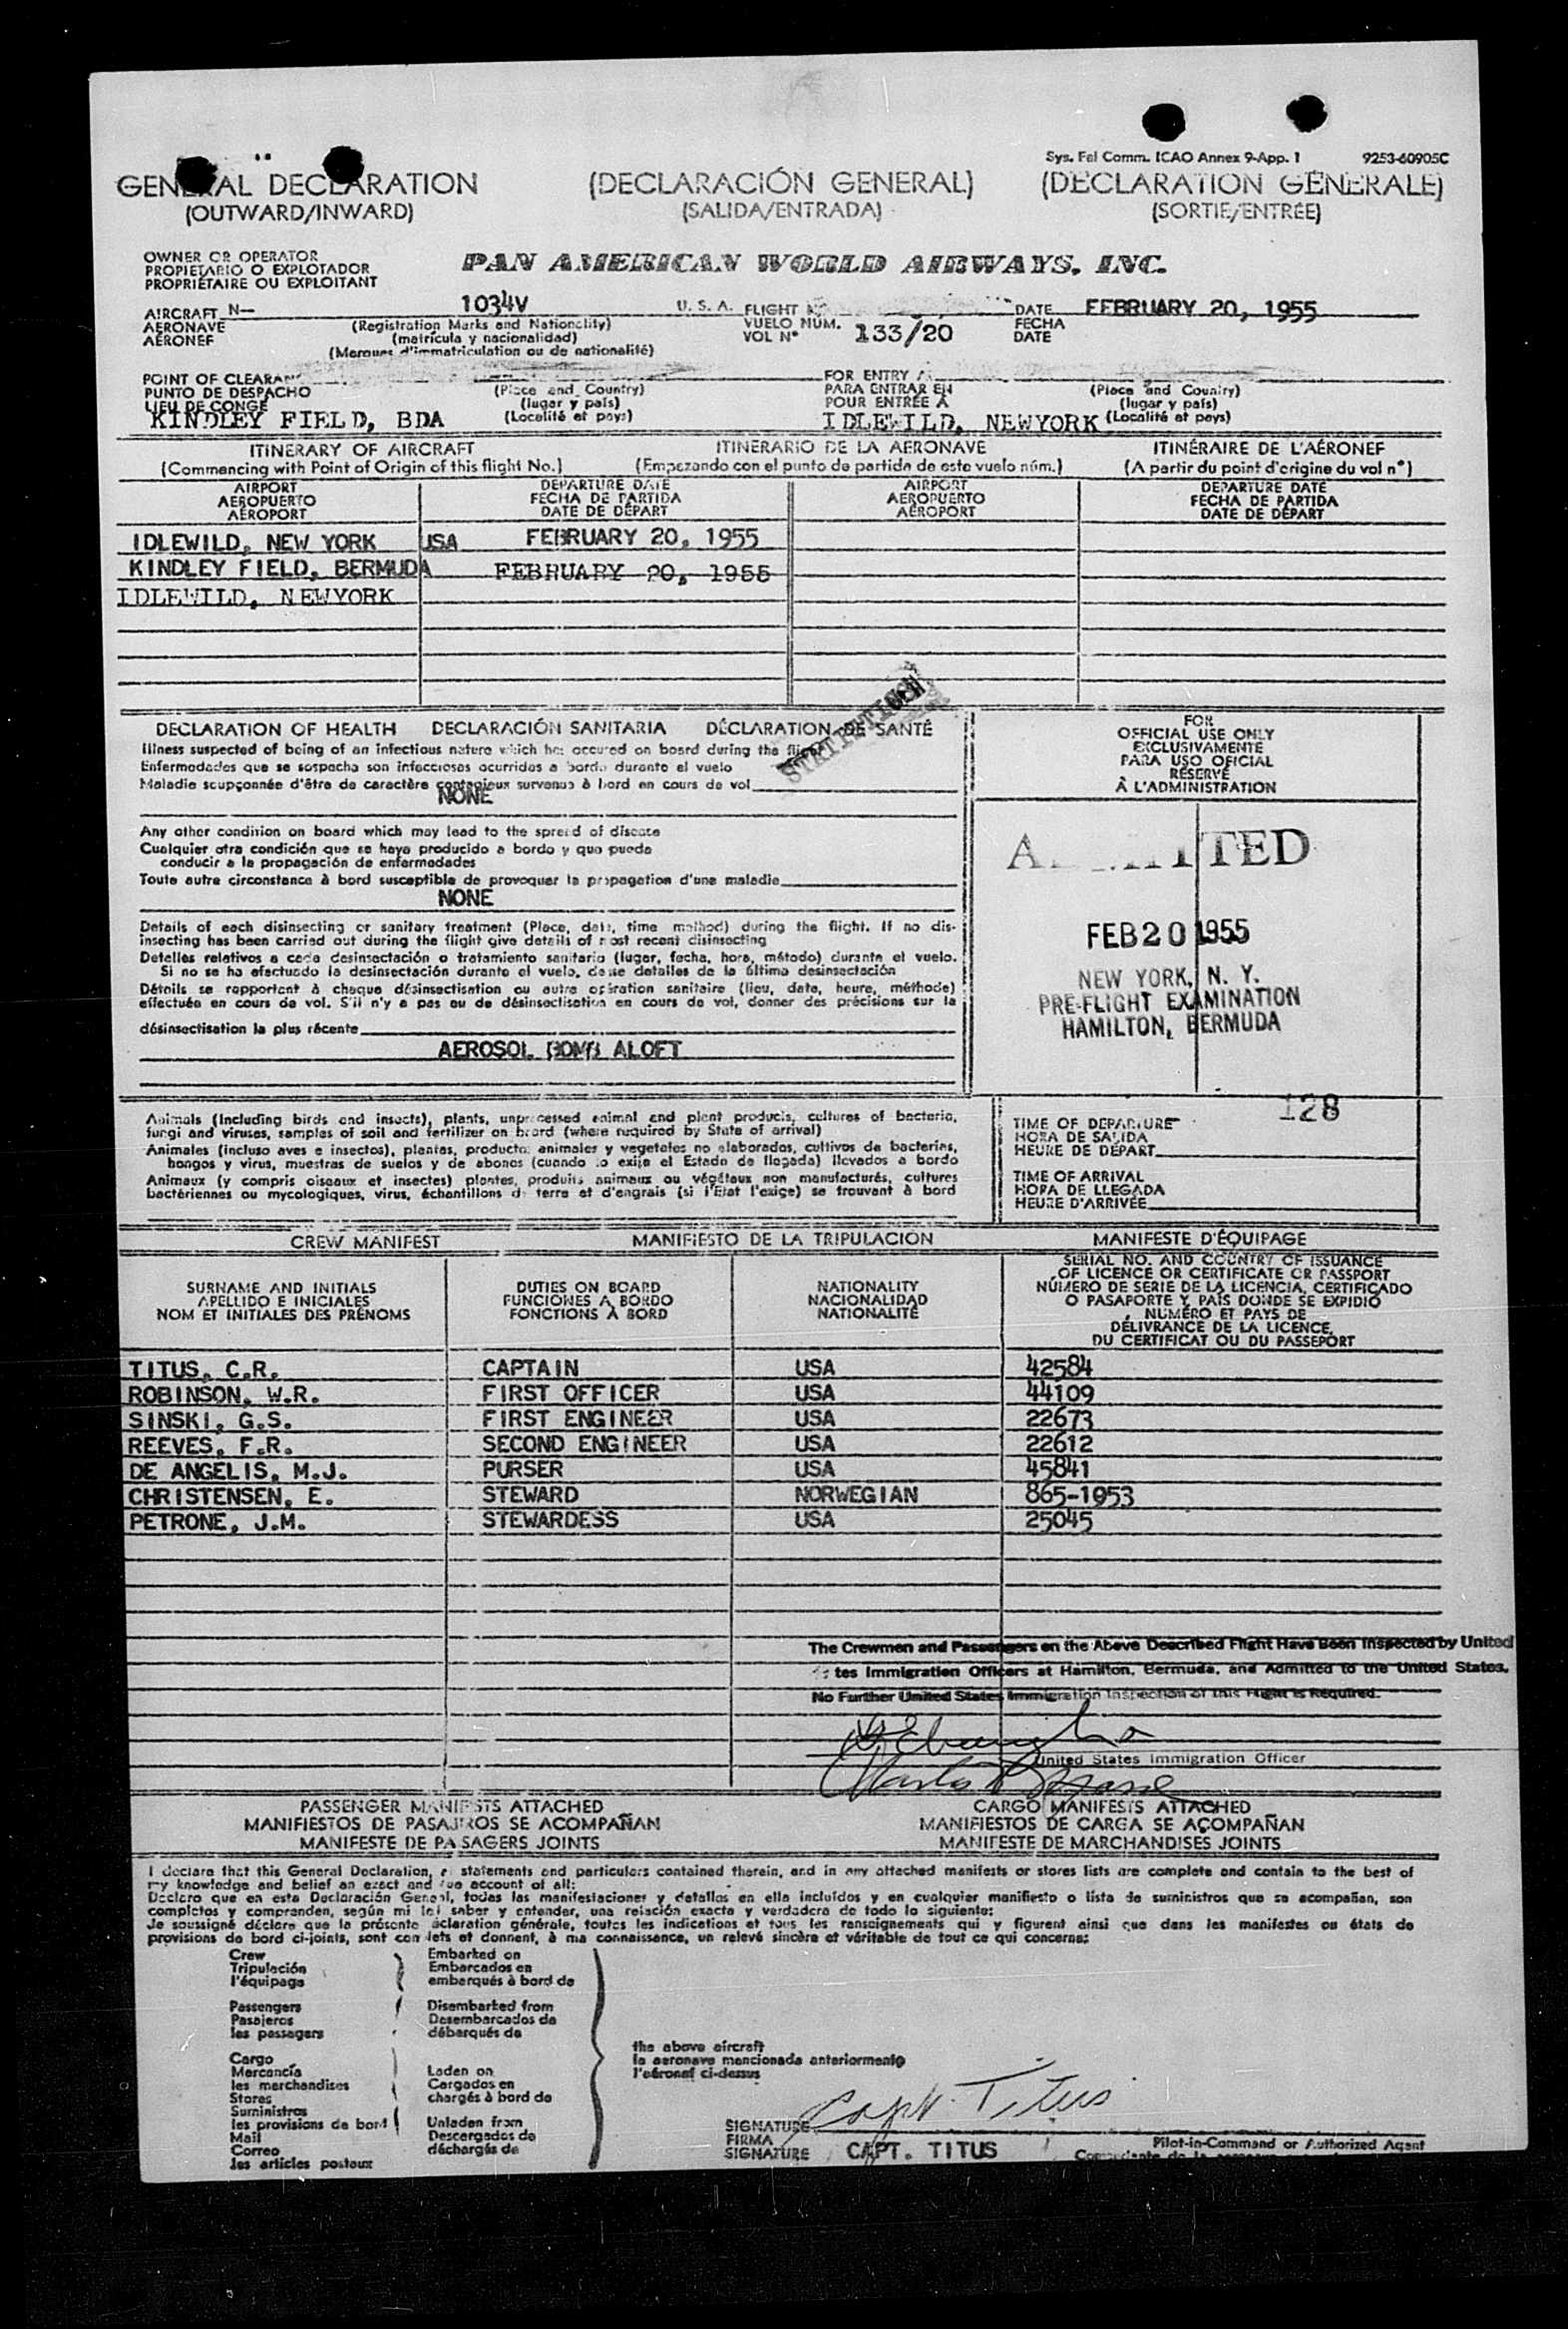 Sys. Fal Comm. ICAO Annex 9-App. 1 9253-60905C
GENERAL DECLARATION (DECLARACIÓN GENERAL) (DECLARATION GÉNÉRALE)
(OUTWARD/INWARD) (SALIDA/ENTRADA) (SORTIE/ENTRÉE)
OWNER OR OPERATOR
PROPIETARIO O EXPLOTADOR
PROPRIÉTAIRE OU EXPLOITANT
PAN AMERICAN WORLD AIRWAYS, INC.
AIRCRAFT N- 1034V U. S. A. FLIGHT DATE FEBRUARY 20, 1955
AERONAVE (Registration Marks and Nationality) VUELO NÚM. 133/20 FECHA
AÉRONEF (matrícula y nacionalidad) VOL Nº DATE
(Marques d'immatriculation ou de nationalité)
POINT OF CLEARANCE FOR ENTRY
PUNTO DE DESPACHO (Place and Country) PARA ENTRAR EN (Place and Country)
LIEU DE CONGÉ (lugar y país) POUR ENTRÉE À (lugar y país)
KINDLEY FIELD, BDA (Localité et pays) IDLEWILD, NEWYORK (Localité et pays)
ITINERARY OF AIRCRAFT ITINERARIO DE LA AERONAVE ITINÉRAIRE DE L'AÉRONEF
(Commencing with Point of Origin of this flight No.) (Empezando con el punto de partida de este vuelo núm.) (A partir du point d'origine du vol nº)
AIRPORT DEPARTURE DATE AIRPORT DEPARTURE DATE
AEROPUERTO FECHA DE PARTIDA AEROPUERTO FECHA DE PARTIDA
AÉROPORT DATE DE DÉPART AÉROPORT DATE DE DÉPART
IDLEWILD, NEW YORK USA FEBRUARY 20, 1955
KINDLEY FIELD, BERMUDA FEBRUARY 20, 1955
IDLEWILD, NEWYORK
DECLARATION OF HEALTH DECLARACIÓN SANITARIA DÉCLARATION DE SANTÉ
Illness suspected of being of an infectious nature which has occured on board during the flight
Enfermedades que se sospecha son infecciosas ocurridas a bordo durante el vuelo
Maladie soupçonnée d'être de caractère contagieux survenue à bord en cours de vol
NONE
Any other condition on board which may lead to the spread of disease
Cualquier otra condición que se haya producido a bordo y que pueda
conducir a la propagación de enfermedades
Toute autre circonstance à bord susceptible de provoquer la propagation d'une maladie
NONE
Details of each disinsecting or sanitary treatment (Place, date, time method) during the flight. If no dis-
insecting has been carried out during the flight give details of most recent disinsecting
Detalles relativos a cada desinsectación o tratamiento sanitario (lugar, fecha, hora, método) durante el vuelo.
Si no se ha efectuado la desinsectación durante el vuelo, dense detalles de la última desinsectación
Détails se rapportant à chaque désinsectisation ou autre opération sanitaire (lieu, date, heure, méthode)
effectuée en cours de vol. S'il n'y a pas eu de désinsectisation en cours de vol, donner des précisions sur la
désinsectisation la plus récente
AEROSOL BOMB ALOFT
FOR
OFFICIAL USE ONLY
EXCLUSIVAMENTE
PARA USO OFICIAL
RÉSERVÉ
À L'ADMINISTRATION
ADMITTED
FEB 20 1955
NEW YORK, N. Y.
PRE-FLIGHT EXAMINATION
HAMILTON, BERMUDA
128
Animals (Including birds and insects), plants, unprocessed animal and plant products, cultures of bacteria,
fungi and viruses, samples of soil and fertilizer on board (where required by State of arrival)
Animales (incluso aves e insectos), plantas, productos animales y vegetales no elaborados, cultivos de bacterias,
hongos y virus, muestras de suelos y de abonos (cuando lo exija el Estado de llegada) llevados a bordo
Animaux (y compris oiseaux et insectes) plantes, produits animaux ou végétaux non manufacturés, cultures
bactériennes ou mycologiques, virus, échantillons de terre et d'engrais (si l'État l'exige) se trouvant à bord
TIME OF DEPARTURE
HORA DE SALIDA
HEURE DE DÉPART
TIME OF ARRIVAL
HORA DE LLEGADA
HEURE D'ARRIVÉE
CREW MANIFEST MANIFIESTO DE LA TRIPULACIÓN MANIFESTE D'ÉQUIPAGE
SURNAME AND INITIALS
APELLIDO E INICIALES
NOM ET INITIALES DES PRÉNOMS
DUTIES ON BOARD
FUNCIONES A BORDO
FONCTIONS À BORD
NATIONALITY
NACIONALIDAD
NATIONALITÉ
SERIAL NO. AND COUNTRY OF ISSUANCE
OF LICENCE OR CERTIFICATE OR PASSPORT
NÚMERO DE SERIE DE LA LICENCIA, CERTIFICADO
O PASAPORTE Y PAÍS DONDE SE EXPIDIÓ
NUMÉRO ET PAYS DE
DÉLIVRANCE DE LA LICENCE,
DU CERTIFICAT OU DU PASSEPORT
TITUS, C.R. CAPTAIN USA 42584
ROBINSON, W.R. FIRST OFFICER USA 44109
SINSKI, G.S. FIRST ENGINEER USA 22673
REEVES, F.R. SECOND ENGINEER USA 22612
DE ANGELIS, M.J. PURSER USA 45841
CHRISTENSEN, E. STEWARD NORWEGIAN 865-1953
PETRONE, J.M. STEWARDESS USA 25045
The Crewmen and Passengers on the Above Described Flight Have Been Inspected by United
tes Immigration Officers at Hamilton, Bermuda, and Admitted to the United States.
No Further United States Immigration Inspection of this Flight is Required.
United States Immigration Officer
PASSENGER MANIFESTS ATTACHED CARGO MANIFESTS ATTACHED
MANIFIESTOS DE PASAJEROS SE ACOMPAÑAN MANIFIESTOS DE CARGA SE ACOMPAÑAN
MANIFESTE DE PASSAGERS JOINTS MANIFESTE DE MARCHANDISES JOINTS
I declare that this General Declaration, statements and particulars contained therein, and in any attached manifests or stores lists are complete and contain to the best of
my knowledge and belief an exact and true account of all:
Declaro que en esta Declaración General, todas las manifestaciones y detalles en ella incluídos y en cualquier manifiesto o lista de suministros que se acompañan, son
completos y comprenden, según mi leal saber y entender, una relación exacta y verdadera de todo lo siguiente:
Je soussigné déclare que la présente déclaration générale, toutes les indications et tous les renseignements qui y figurent ainsi que dans les manifestes ou états de
provisions de bord ci-joints, sont complets et donnent, à ma connaissance, un relevé sincère et véritable de tout ce qui concerne:
Crew Embarked on
Tripulación Embarcados en
l'équipage embarqués à bord de
Passengers Disembarked from
Pasajeros Desembarcados de
les passagers débarqués de
the above aircraft
la aeronave mencionada anteriormente
l'aéronef ci-dessus
Cargo
Mercancía Laden on
les marchandises Cargados en
Stores chargés à bord de
Suministros
les provisions de bord Unladen from
Mail Descargados de
Correo déchargés de
les articles postaux
Capt. Titus
SIGNATURE
FIRMA Pilot-in-Command or Authorized Agent
SIGNATURE CAPT. TITUS